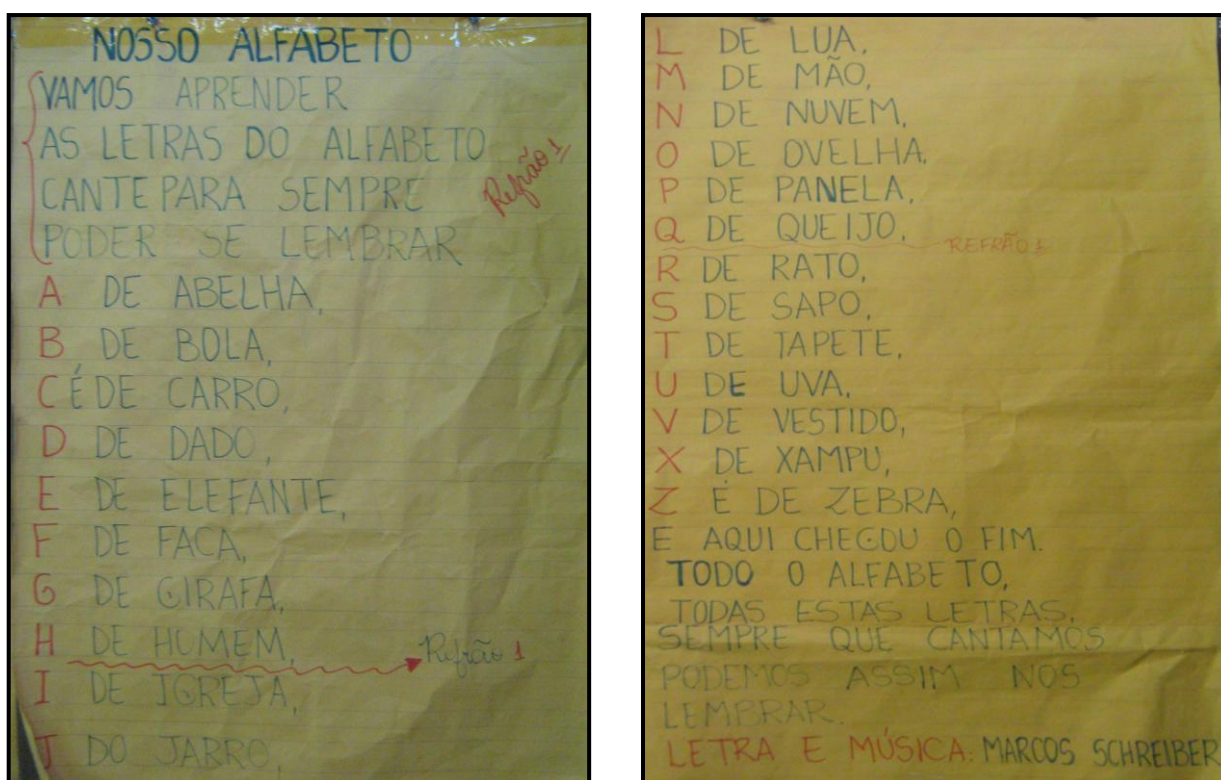 NOSSO ALFABETO
VAMOS APRENDER
AS LETRAS DO ALFABETO
CANTE PARA SEMPRE
PODER SE LEMBRAR
Refrão 1
A DE ABELHA,
B DE BOLA,
C É DE CARRO,
D DE DADO,
E DE ELEFANTE,
F DE FACA,
G DE GIRAFA,
H DE HOMEM,
Refrão 1
I DE IGREJA,
J DO JARRO,
L DE LUA,
M DE MÃO,
N DE NUVEM,
O DE OVELHA.
P DE PANELA,
Q DE QUEIJO,
REFRÃO 1
R DE RATO,
S DE SAPO,
T DE TAPETE,
U DE UVA,
V DE VESTIDO,
X DE XAMPU,
Z É DE ZEBRA,
E AQUI CHEGOU O FIM.
TODO O ALFABETO,
TODAS ESTAS LETRAS,
SEMPRE QUE CANTAMOS
PODEMOS ASSIM NOS
LEMBRAR.
LETRA E MÚSICA: MARCOS SCHREIBER